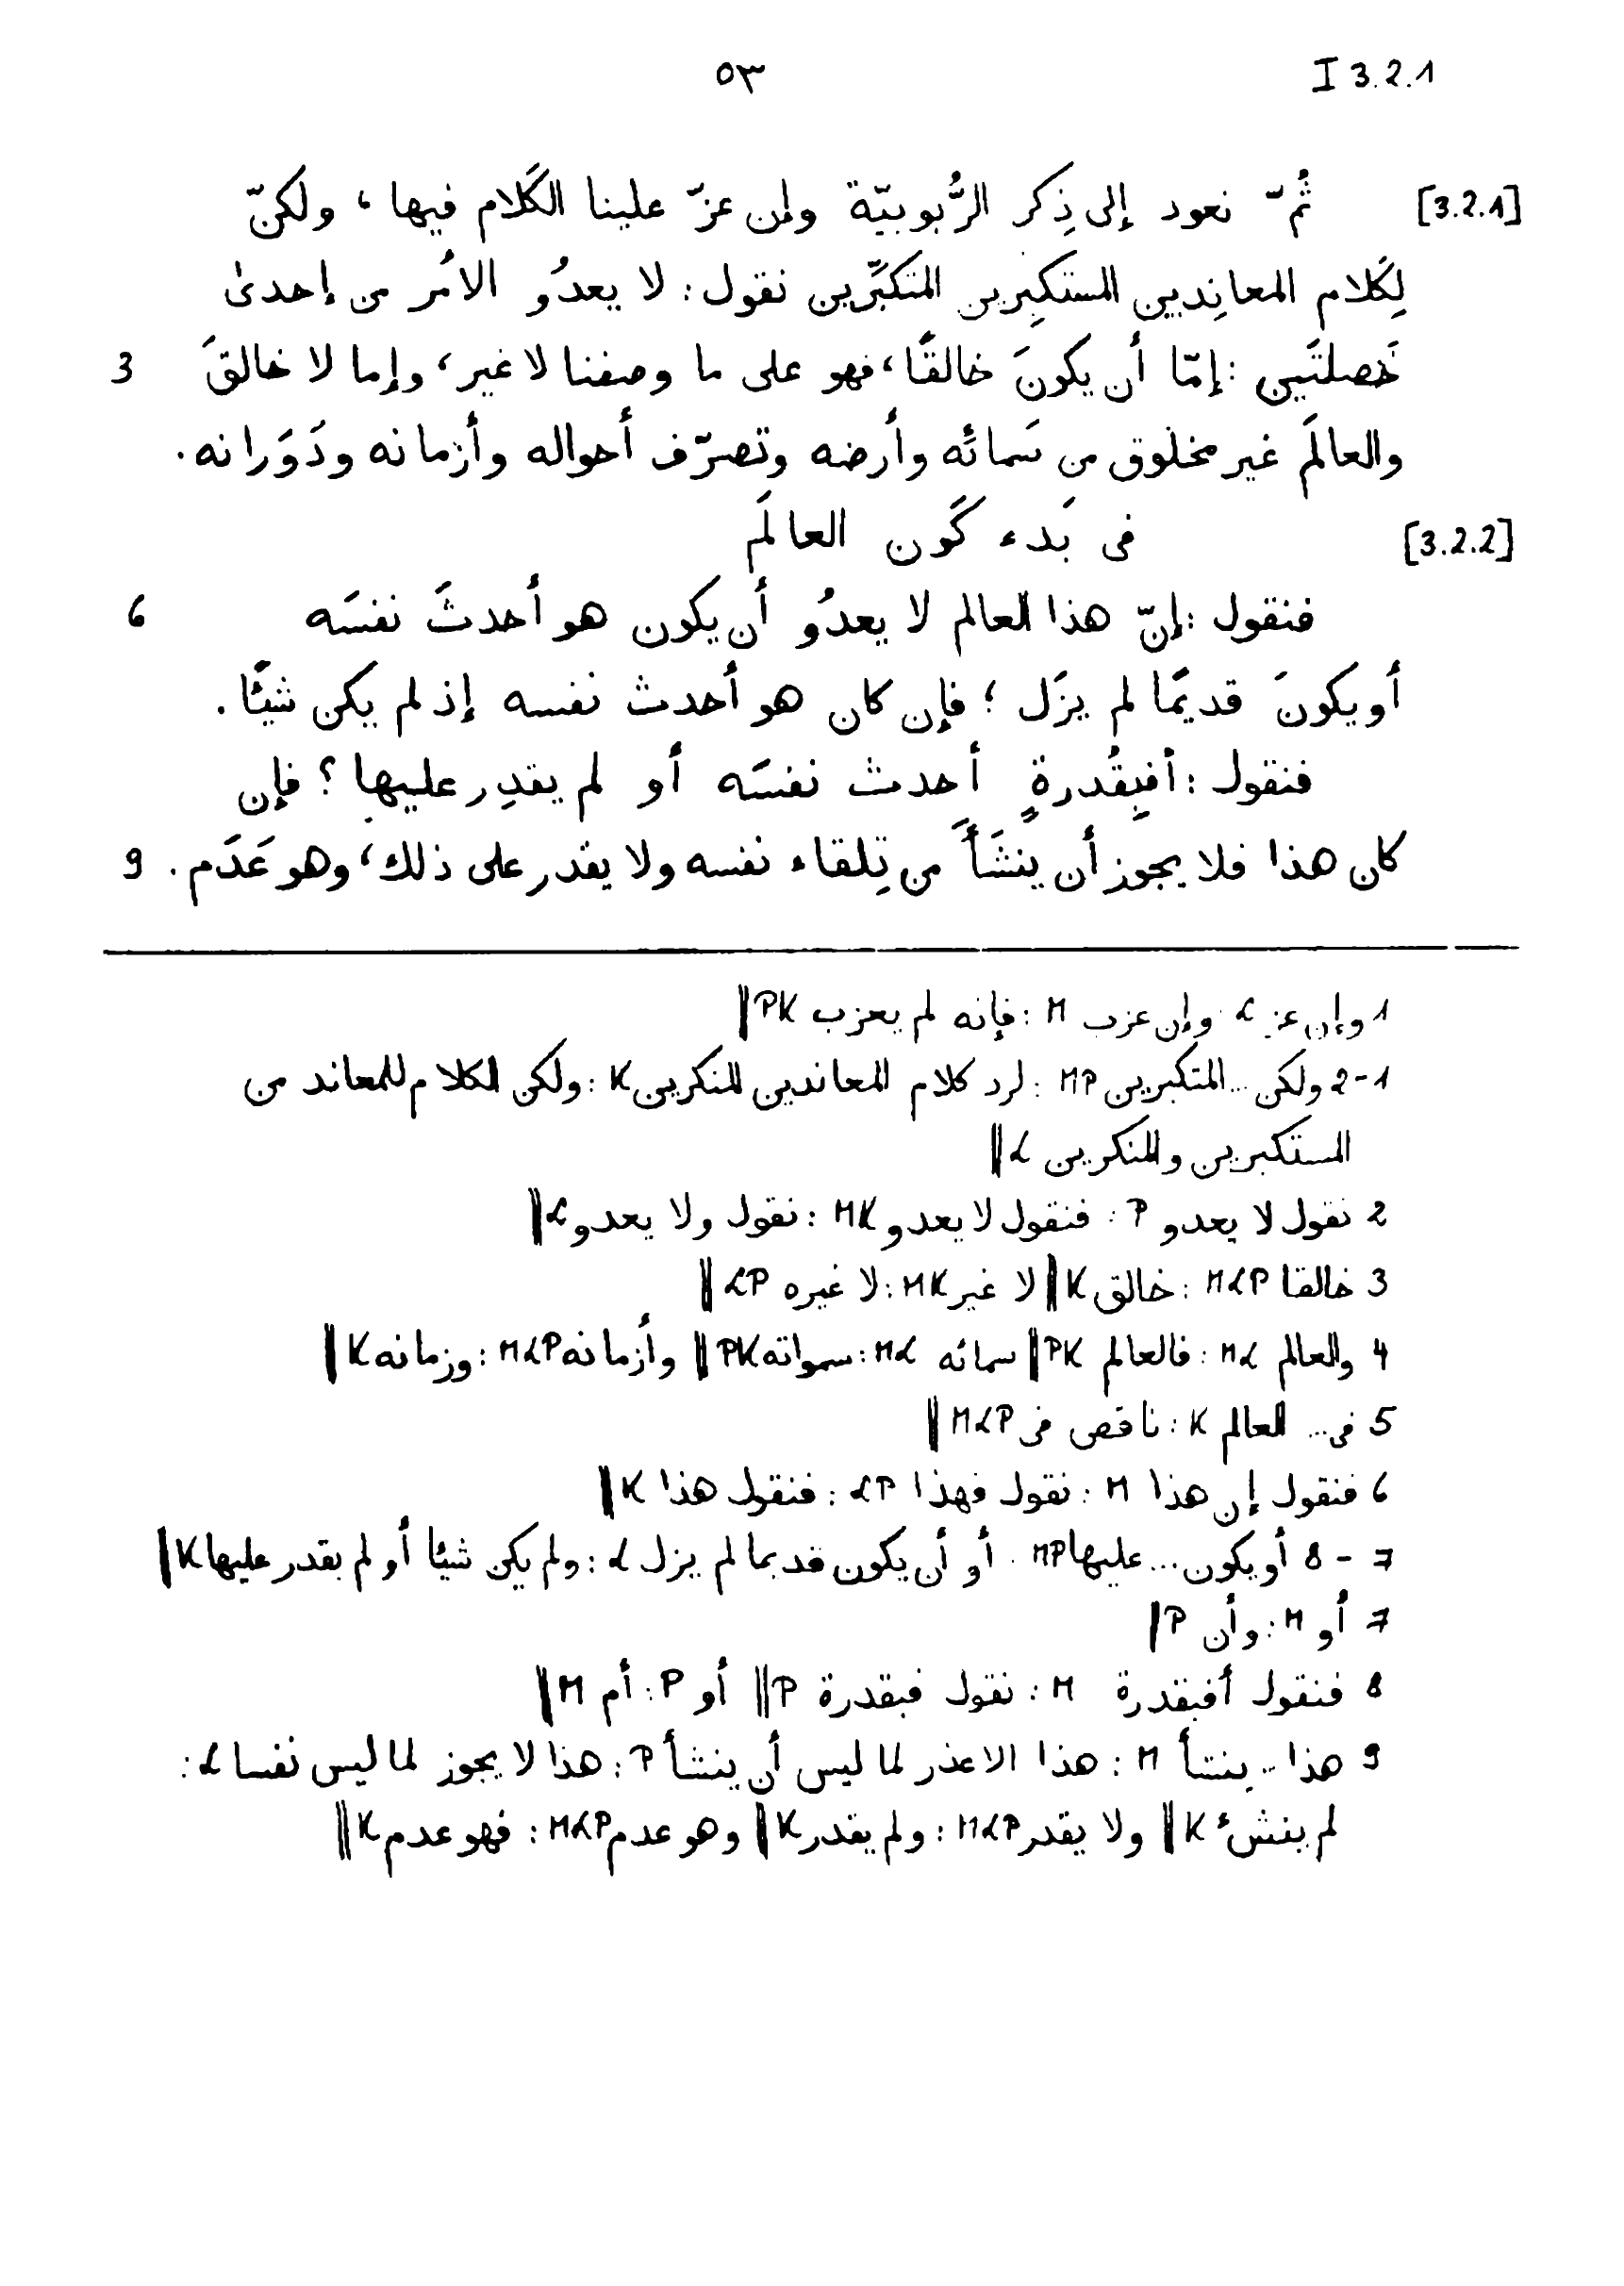 ٥٣
I 3.2.1
[3.2.1] ثُمّ نعود إلى ذِكر الرُّبوبيّة وإن عزّ علينا الكَلام فيها، ولكنّ
لِكَلام المعانِديين المستكبِرين المتكبِّرين نقول: لا يعدُو الامُر من إحدىٰ
3 خَصلتَين: إمّا أن يكونَ خالقًا، فهو على ما وصفنا لا غير، وإما لا خالقَ
والعالَم غير مخلوق من سَمائه وأرضه وتصرّف أحواله وأزمانه ودَوَرانه.
[3.2.2] فى بَدء كَون العالَم
6 فنقول: إنّ هذا العالم لا يعدُو أن يكون هو أحدثَ نفسَه
أو يكونَ قديمًا لم يزَل؛ فإن كان هو أحدث نفسه إذ لم يكن شيئًا.
فنقول: أفبِقُدرةٍ أحدث نفسَه أو لم يقدِر عليها؟ فإن
9 كان هذا فلا يجوز أن ينشَأَ من تِلقاء نفسه ولا يقدر على ذلك، وهو عَدَم.
1 وإن عز L وإن عزب M: فإنه لم يعزب PK‖
1-2 ولكن... المتكبرين MP: لرد كلام المعاندين المنكرين K: ولكن الكلام للمعاند من
المستكبرين والمنكرين L‖
2 نقول لا يعدو P: فنقول لا يعدو MK: نقول ولا يعدو L‖
3 خالقا MLP: خالق K‖ لا غير MK: لا غيره LP‖
4 والعالم ML: فالعالم PK‖ سمائه ML: سمواته PK‖ وأزمانه MLP: وزمانه K‖
5 فى... العالم K: ناقص فى MLP‖
6 فنقول إن هذا M: نقول فهذا LP: فنقول هذا K‖
7-8 أو يكون... عليها MP: أو أن يكون قديما لم يزل L: ولم يكن شيئا أو لم يقدر عليها K‖
7 أو M: وأن P‖
8 فنقول أفبقدرة M: نقول فبقدرة P‖ أو P: أم M‖
9 هذا... ينشأ M: هذا الاعذر لما ليس أن ينشأ P: هذا لا يجوز لما ليس نفسا L:
لم ينشئ K‖ ولا يقدر MLP: ولم يقدر K‖ وهو عدم MLP: فهو عدم K‖